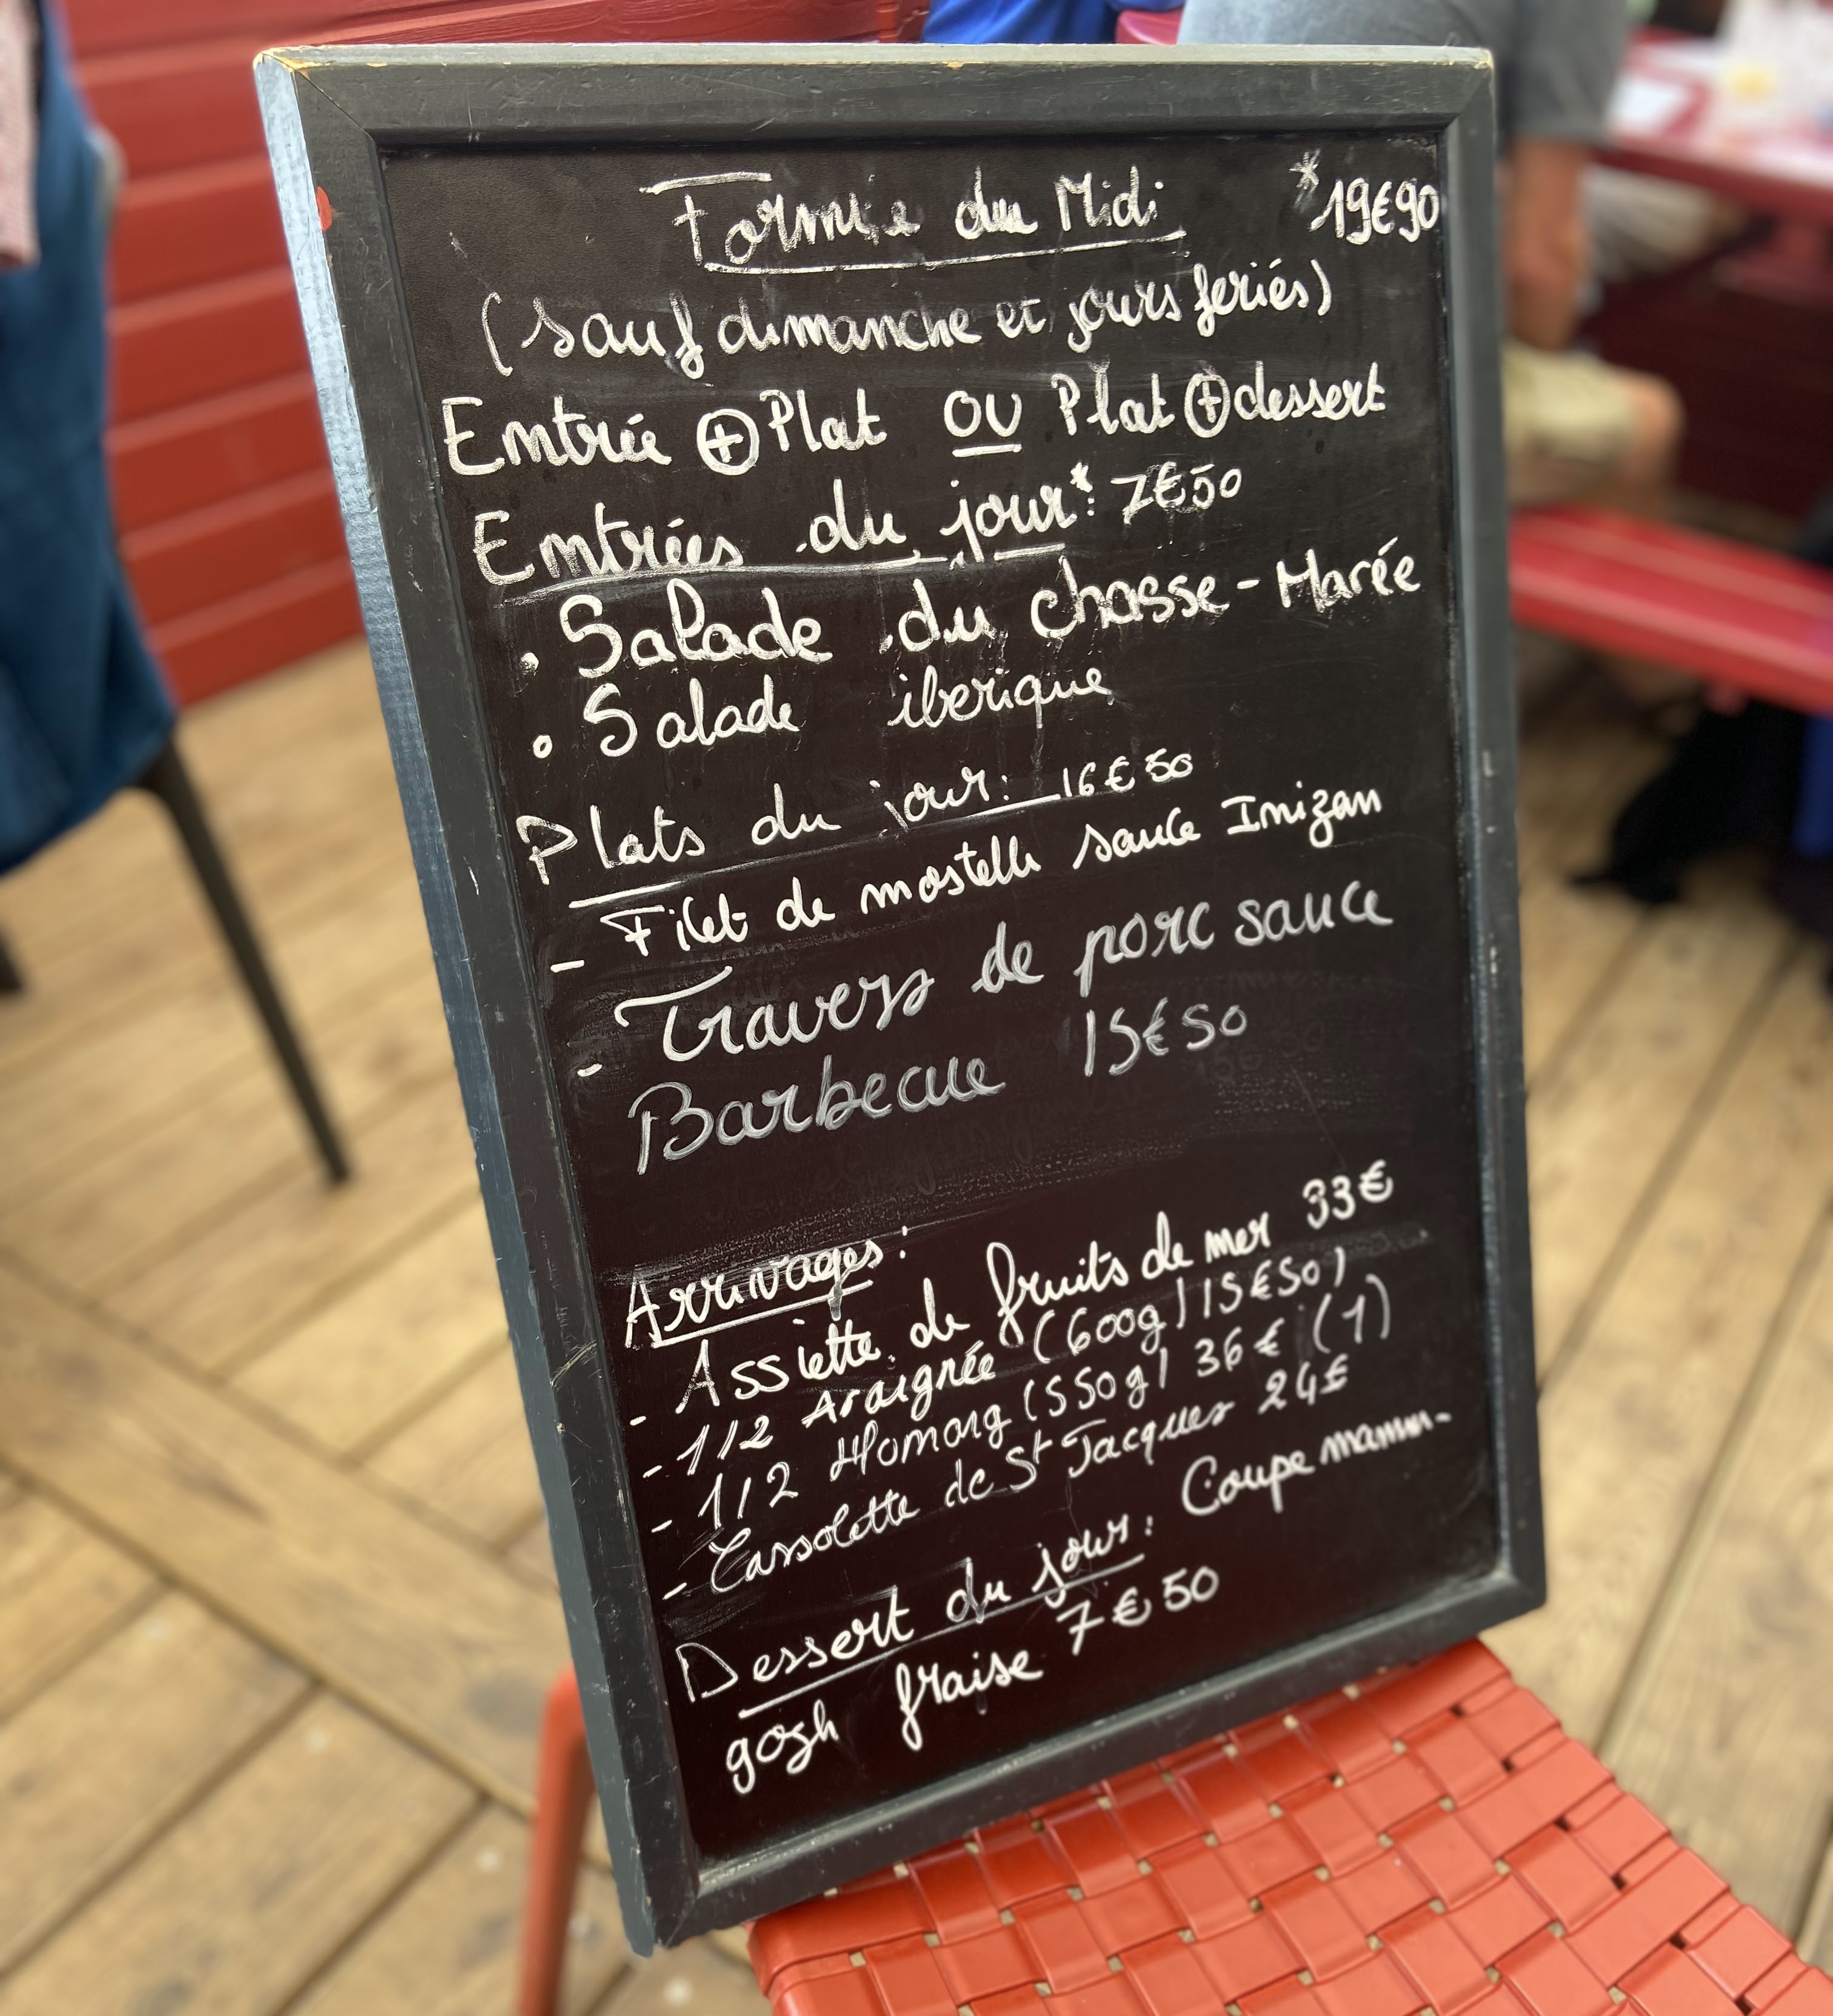 Formule du Midi *19€90
(sauf dimanche et jours feriés)
Entrée + Plat OU Plat + dessert
Entrées du jour*: 7€50
• Salade du chasse-Marée
• Salade iberique
Plats du jour: 16€50
- Filet de mostelle sauce Imizan
- Travers de porc sauce
Barbecue 15€50
Arrivages:
- Assiette de fruits de mer 33€
- 1/2 Araignée (600g) 15€50)
- 1/2 Homarg (550g) 36€ (1)
- Cassolette de St Jacques 24€
Dessert du jour: Coupe mamm-
gozh fraise 7€50